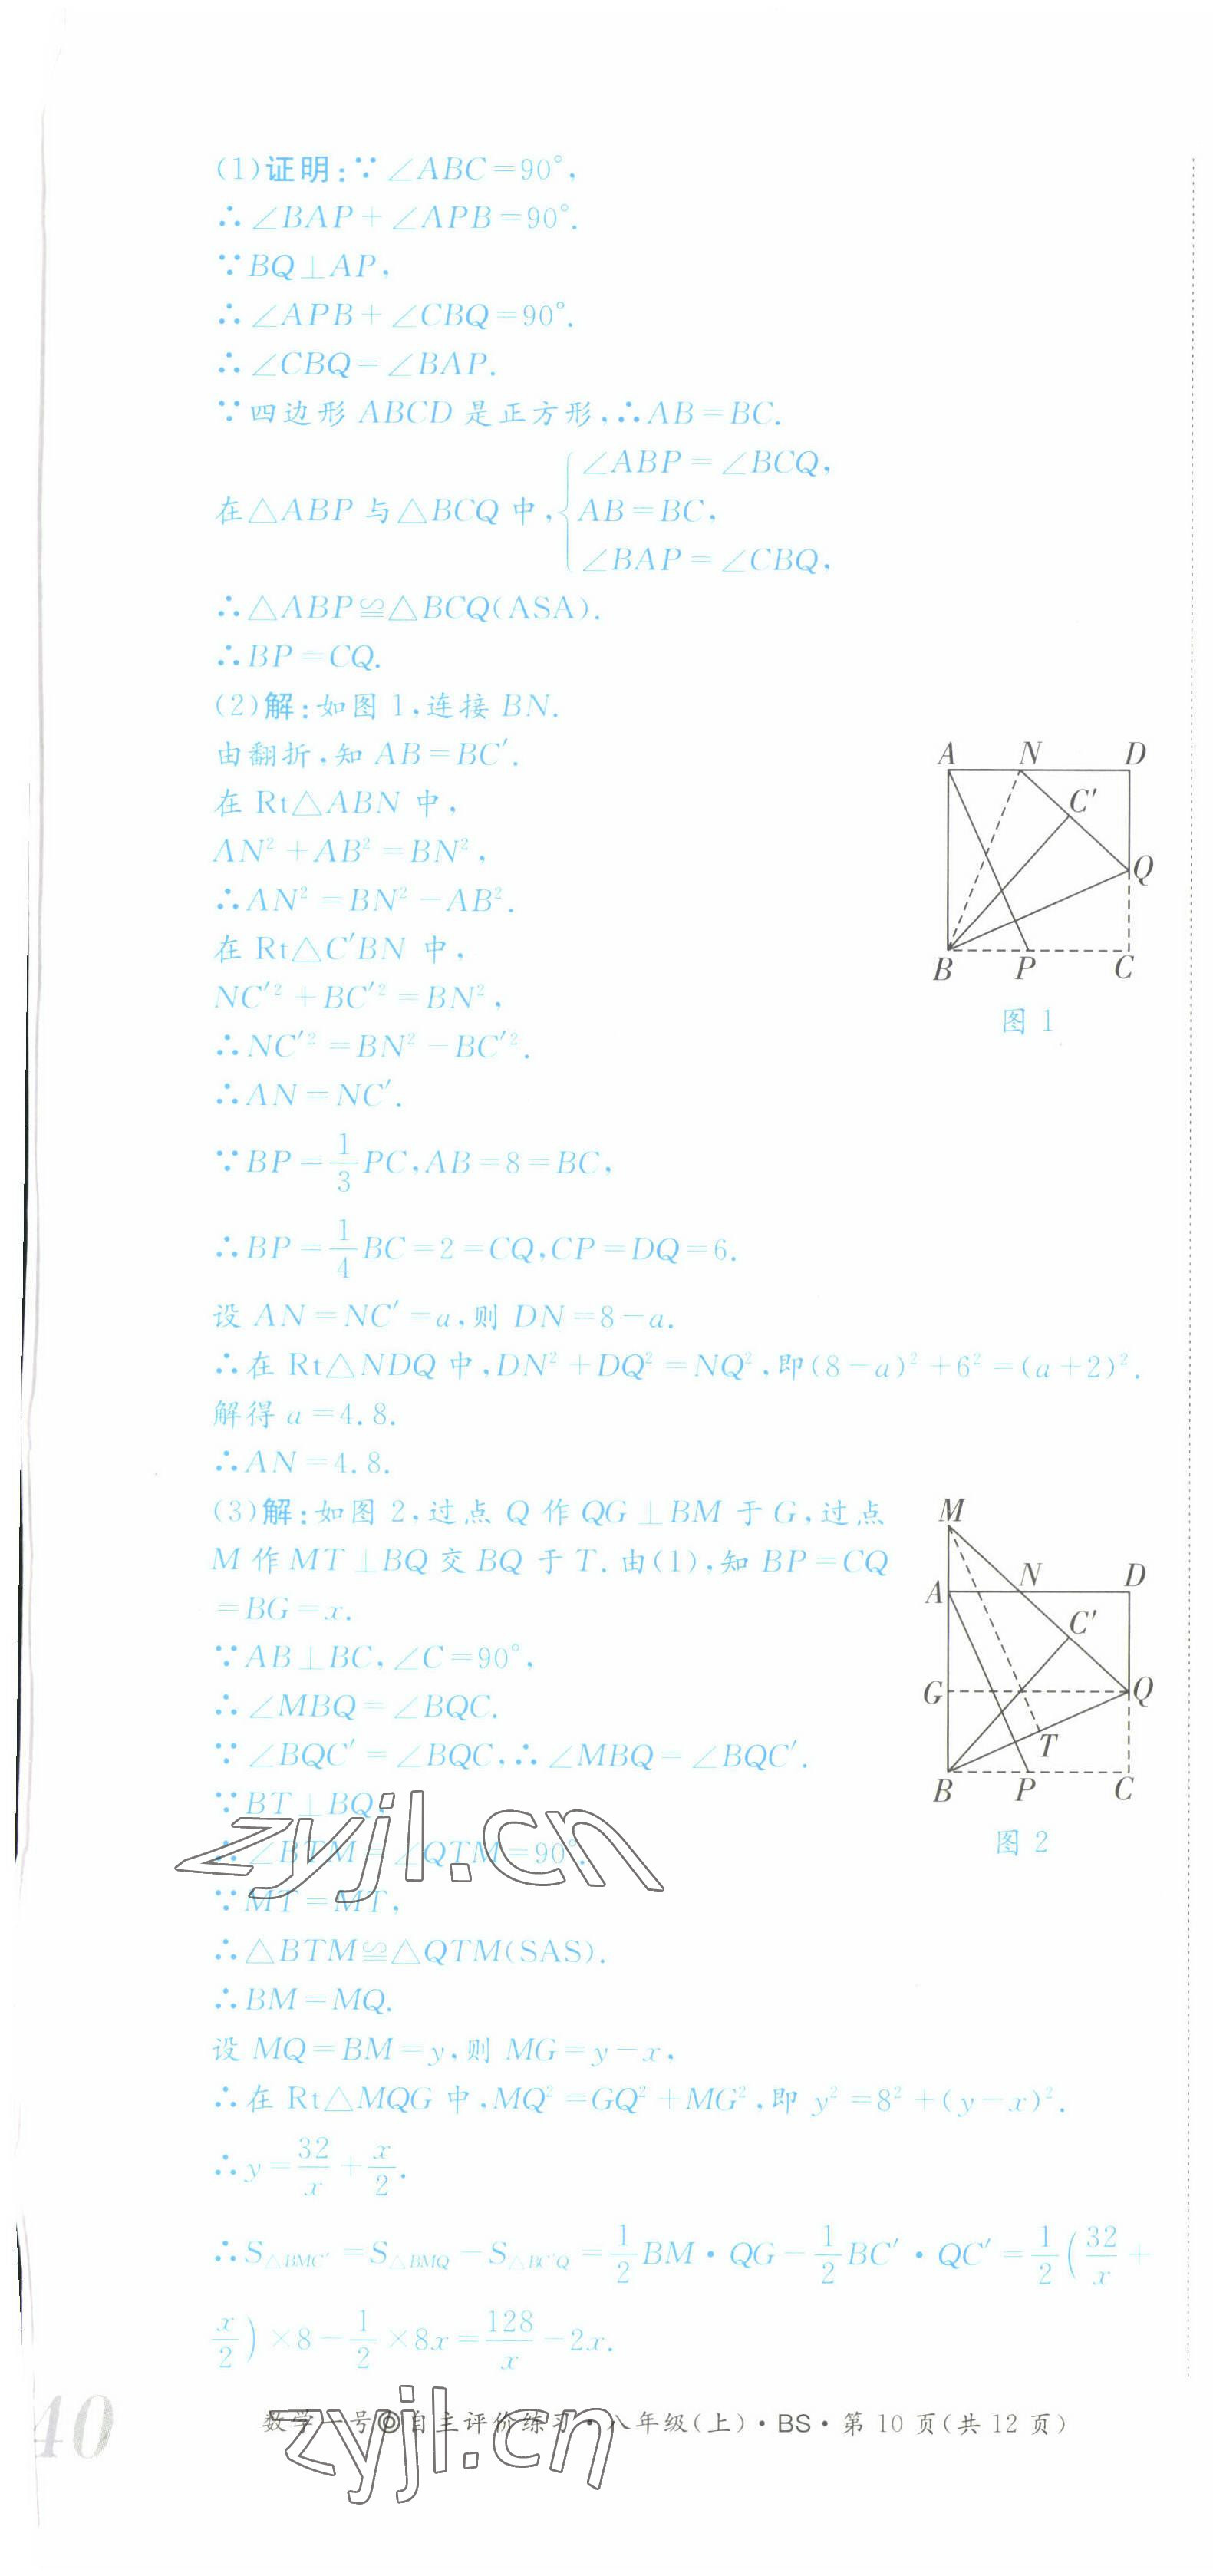 (1)证明:∵∠ABC=90°,
∴∠BAP+∠APB=90°.
∵BQ⊥AP,
∴∠APB+∠CBQ=90°.
∴∠CBQ=∠BAP.
∵四边形 ABCD 是正方形,∴AB=BC.
∠ABP=∠BCQ,
在△ABP 与△BCQ 中,{AB=BC,
∠BAP=∠CBQ,
∴△ABP≌△BCQ(ASA).
∴BP=CQ.
(2)解:如图 1,连接 BN.
由翻折,知 AB=BC′.
在 Rt△ABN 中,
AN²+AB²=BN²,
∴AN²=BN²-AB².
在 Rt△C′BN 中,
NC′²+BC′²=BN²,
∴NC′²=BN²-BC′².
∴AN=NC′.
A N D
C′
Q
B P C
图 1
∵BP=1/3PC,AB=8=BC,
∴BP=1/4BC=2=CQ,CP=DQ=6.
设 AN=NC′=a,则 DN=8-a.
∴在 Rt△NDQ 中,DN²+DQ²=NQ²,即(8-a)²+6²=(a+2)².
解得 a=4.8.
∴AN=4.8.
(3)解:如图 2,过点 Q 作 QG⊥BM 于 G,过点
M 作 MT⊥BQ 交 BQ 于 T.由(1),知 BP=CQ
=BG=x.
∵AB⊥BC,∠C=90°,
∴∠MBQ=∠BQC.
∵∠BQC′=∠BQC,∴∠MBQ=∠BQC′.
∵BT⊥BQ,
∴∠BTM=∠QTM=90°.
∵MT=MT,
∴△BTM≌△QTM(SAS).
∴BM=MQ.
M
A N D
C′
G Q
T
B P C
图 2
设 MQ=BM=y,则 MG=y-x,
∴在 Rt△MQG 中,MQ²=GQ²+MG²,即 y²=8²+(y-x)².
∴y=32/x+x/2.
∴S△BMC′=S△BMQ-S△BC′Q=1/2BM·QG-1/2BC′·QC′=1/2(32/x+
x/2)×8-1/2×8x=128/x-2x.
zyjl.cn
40
数学一号◎自主评价练习·八年级(上)·BS·第 10 页(共 12 页)
zyjl.cn